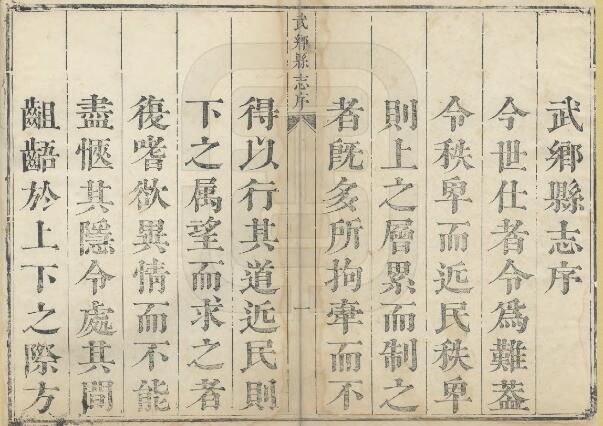 武鄉縣志序
今世仕者令爲難蓋
令秩卑而近民秩卑
則上之層累而制之
者旣多所拘牽而不
武鄉縣志序
一
得以行其道近民則
下之属望而求之者
復嗜欲異情而不能
盡愜其隱令處其間
齟齬於上下之際方